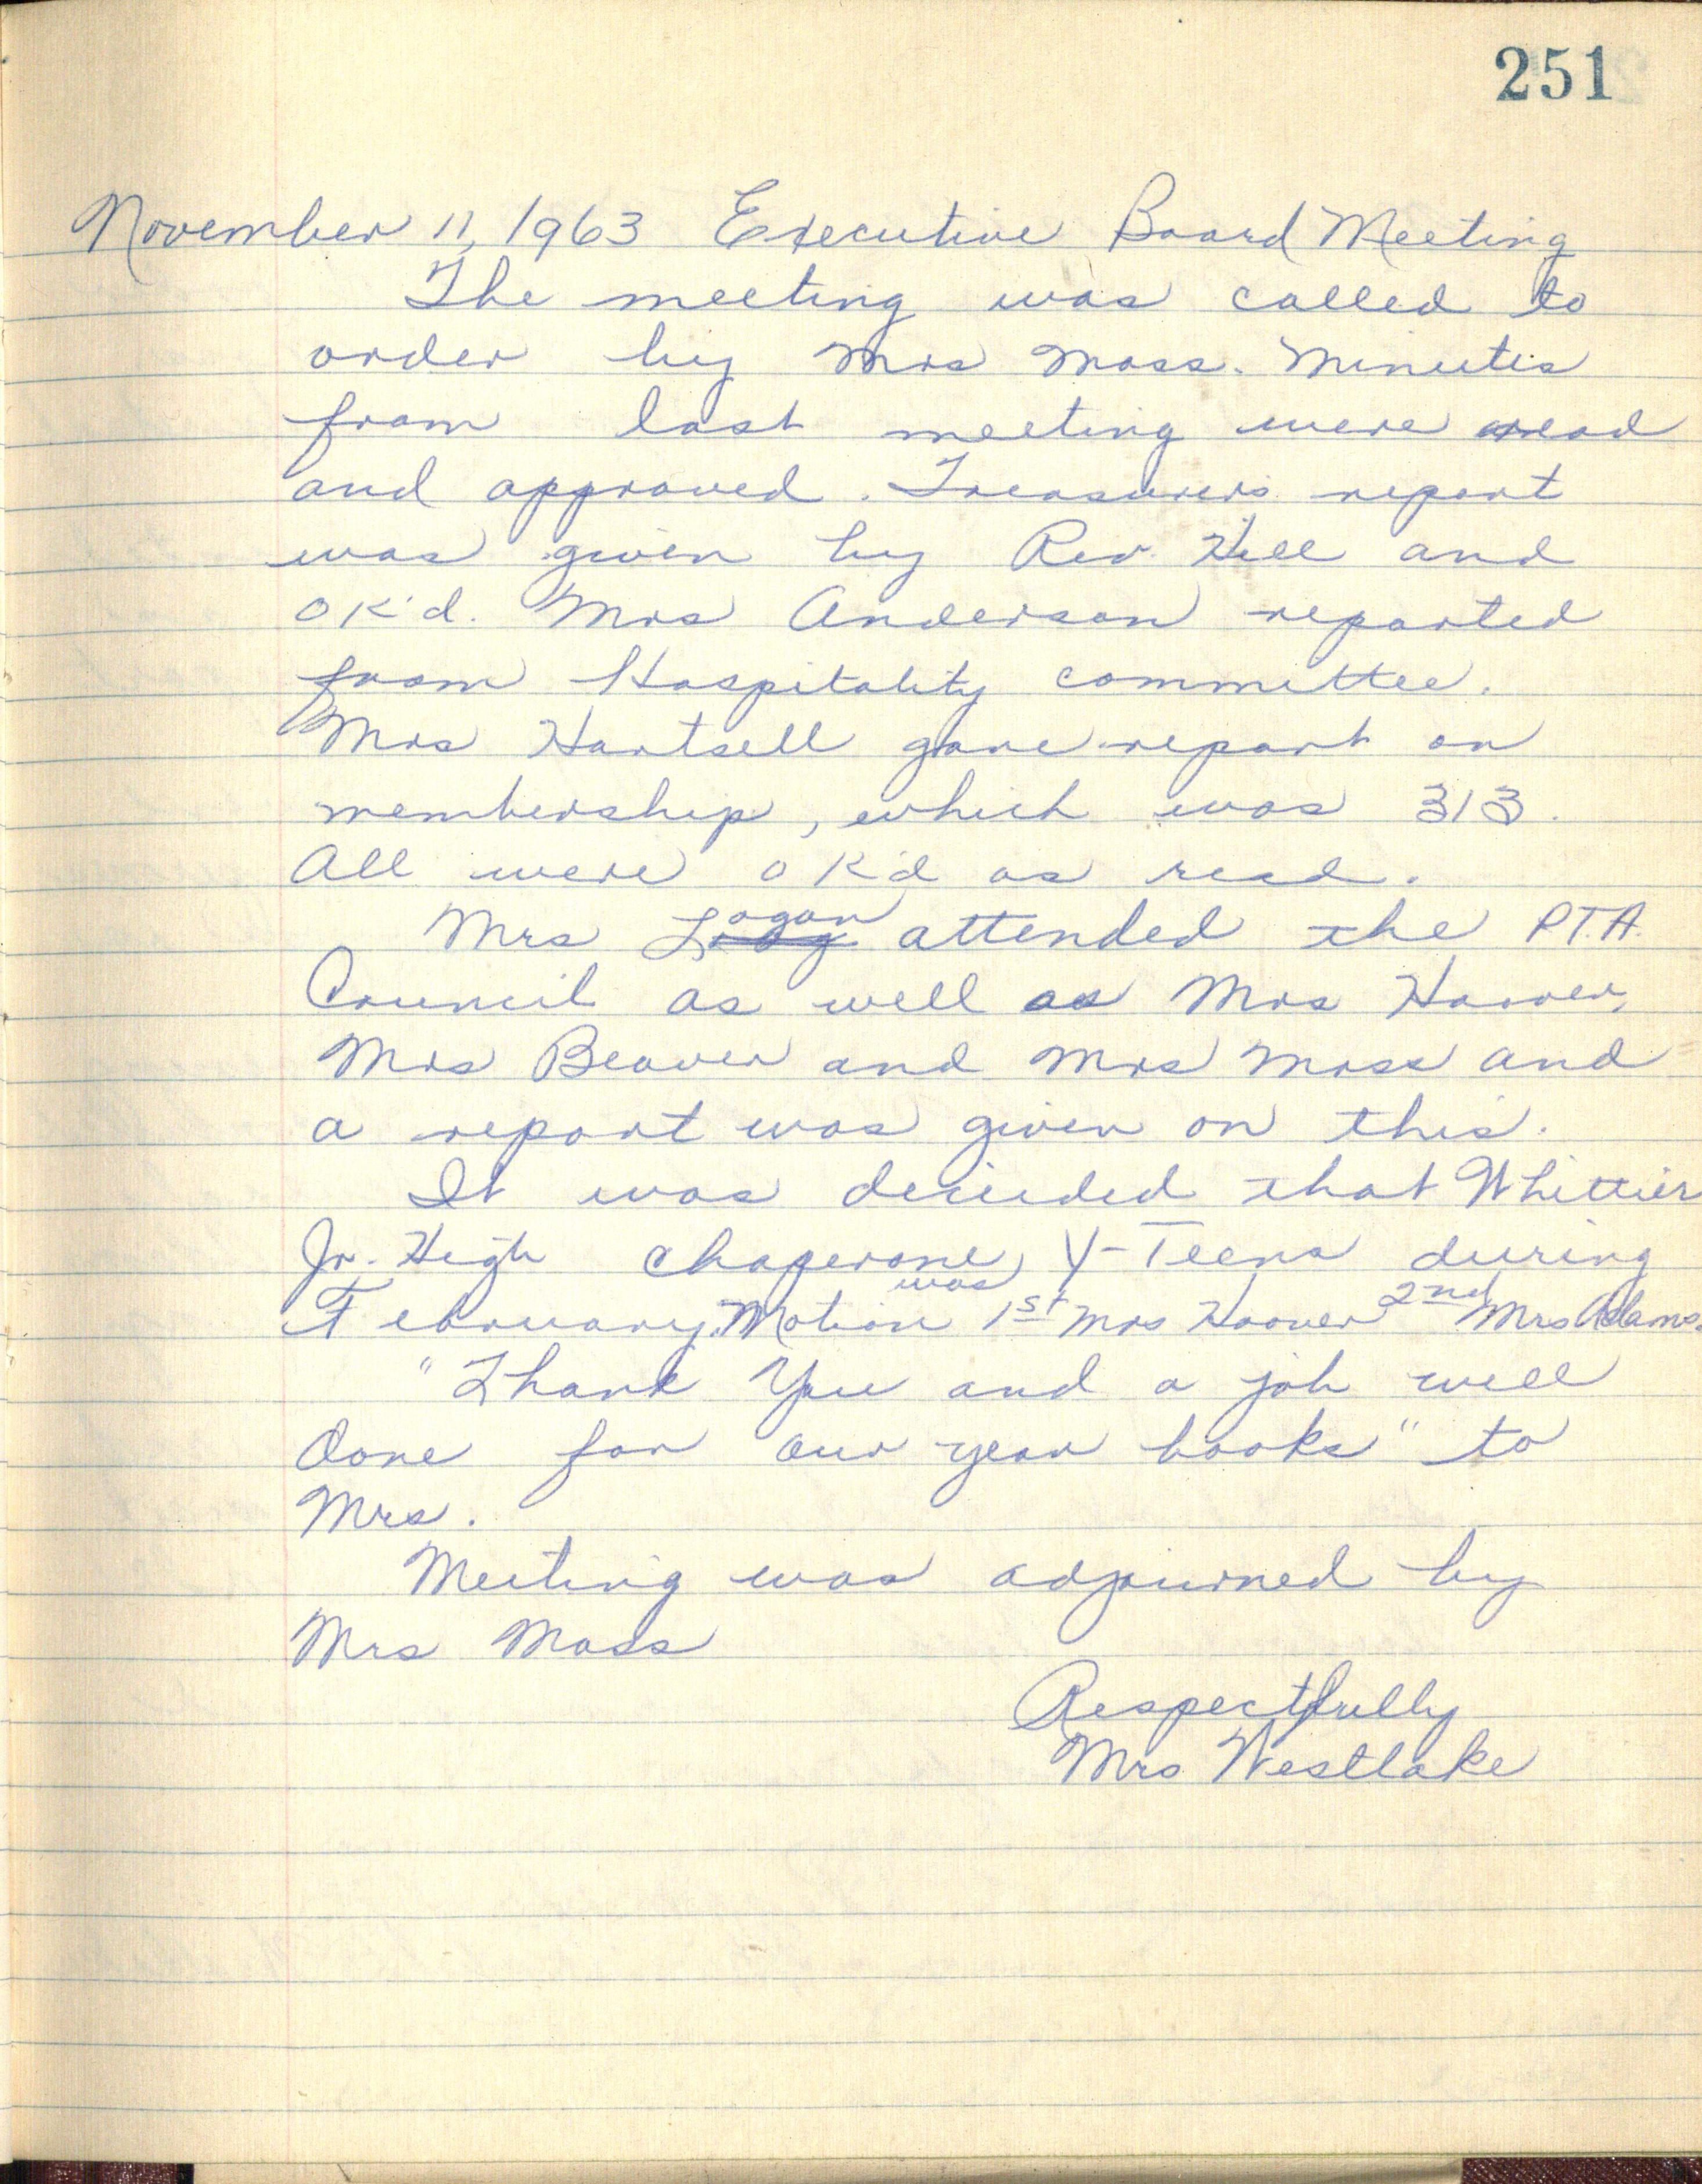 251
November 11, 1963 Executive Board Meeting
The meeting was called to
order by Mrs Moss. Minutes
from last meeting were read
and approved. Treasurers report
was given by Rev. Hill and
OK'd. Mrs Anderson reported
from Hospitality committee.
Mrs Hartsell gave report on
membership, which was 313.
All were OK'd as read.
Mrs Logan attended the P.T.A.
Council as well as Mrs Hoover,
Mrs Beaver and Mrs Moss and
a report was given on this.
It was decided that Whittier
Jr. High chaperone Y-Teens during
February. Motion was 1st Mrs Hoover 2nd Mrs Adams.
"Thank You and a job well
done for our year books" to
Mrs.
Meeting was adjourned by
Mrs Moss
Respectfully
Mrs Westlake